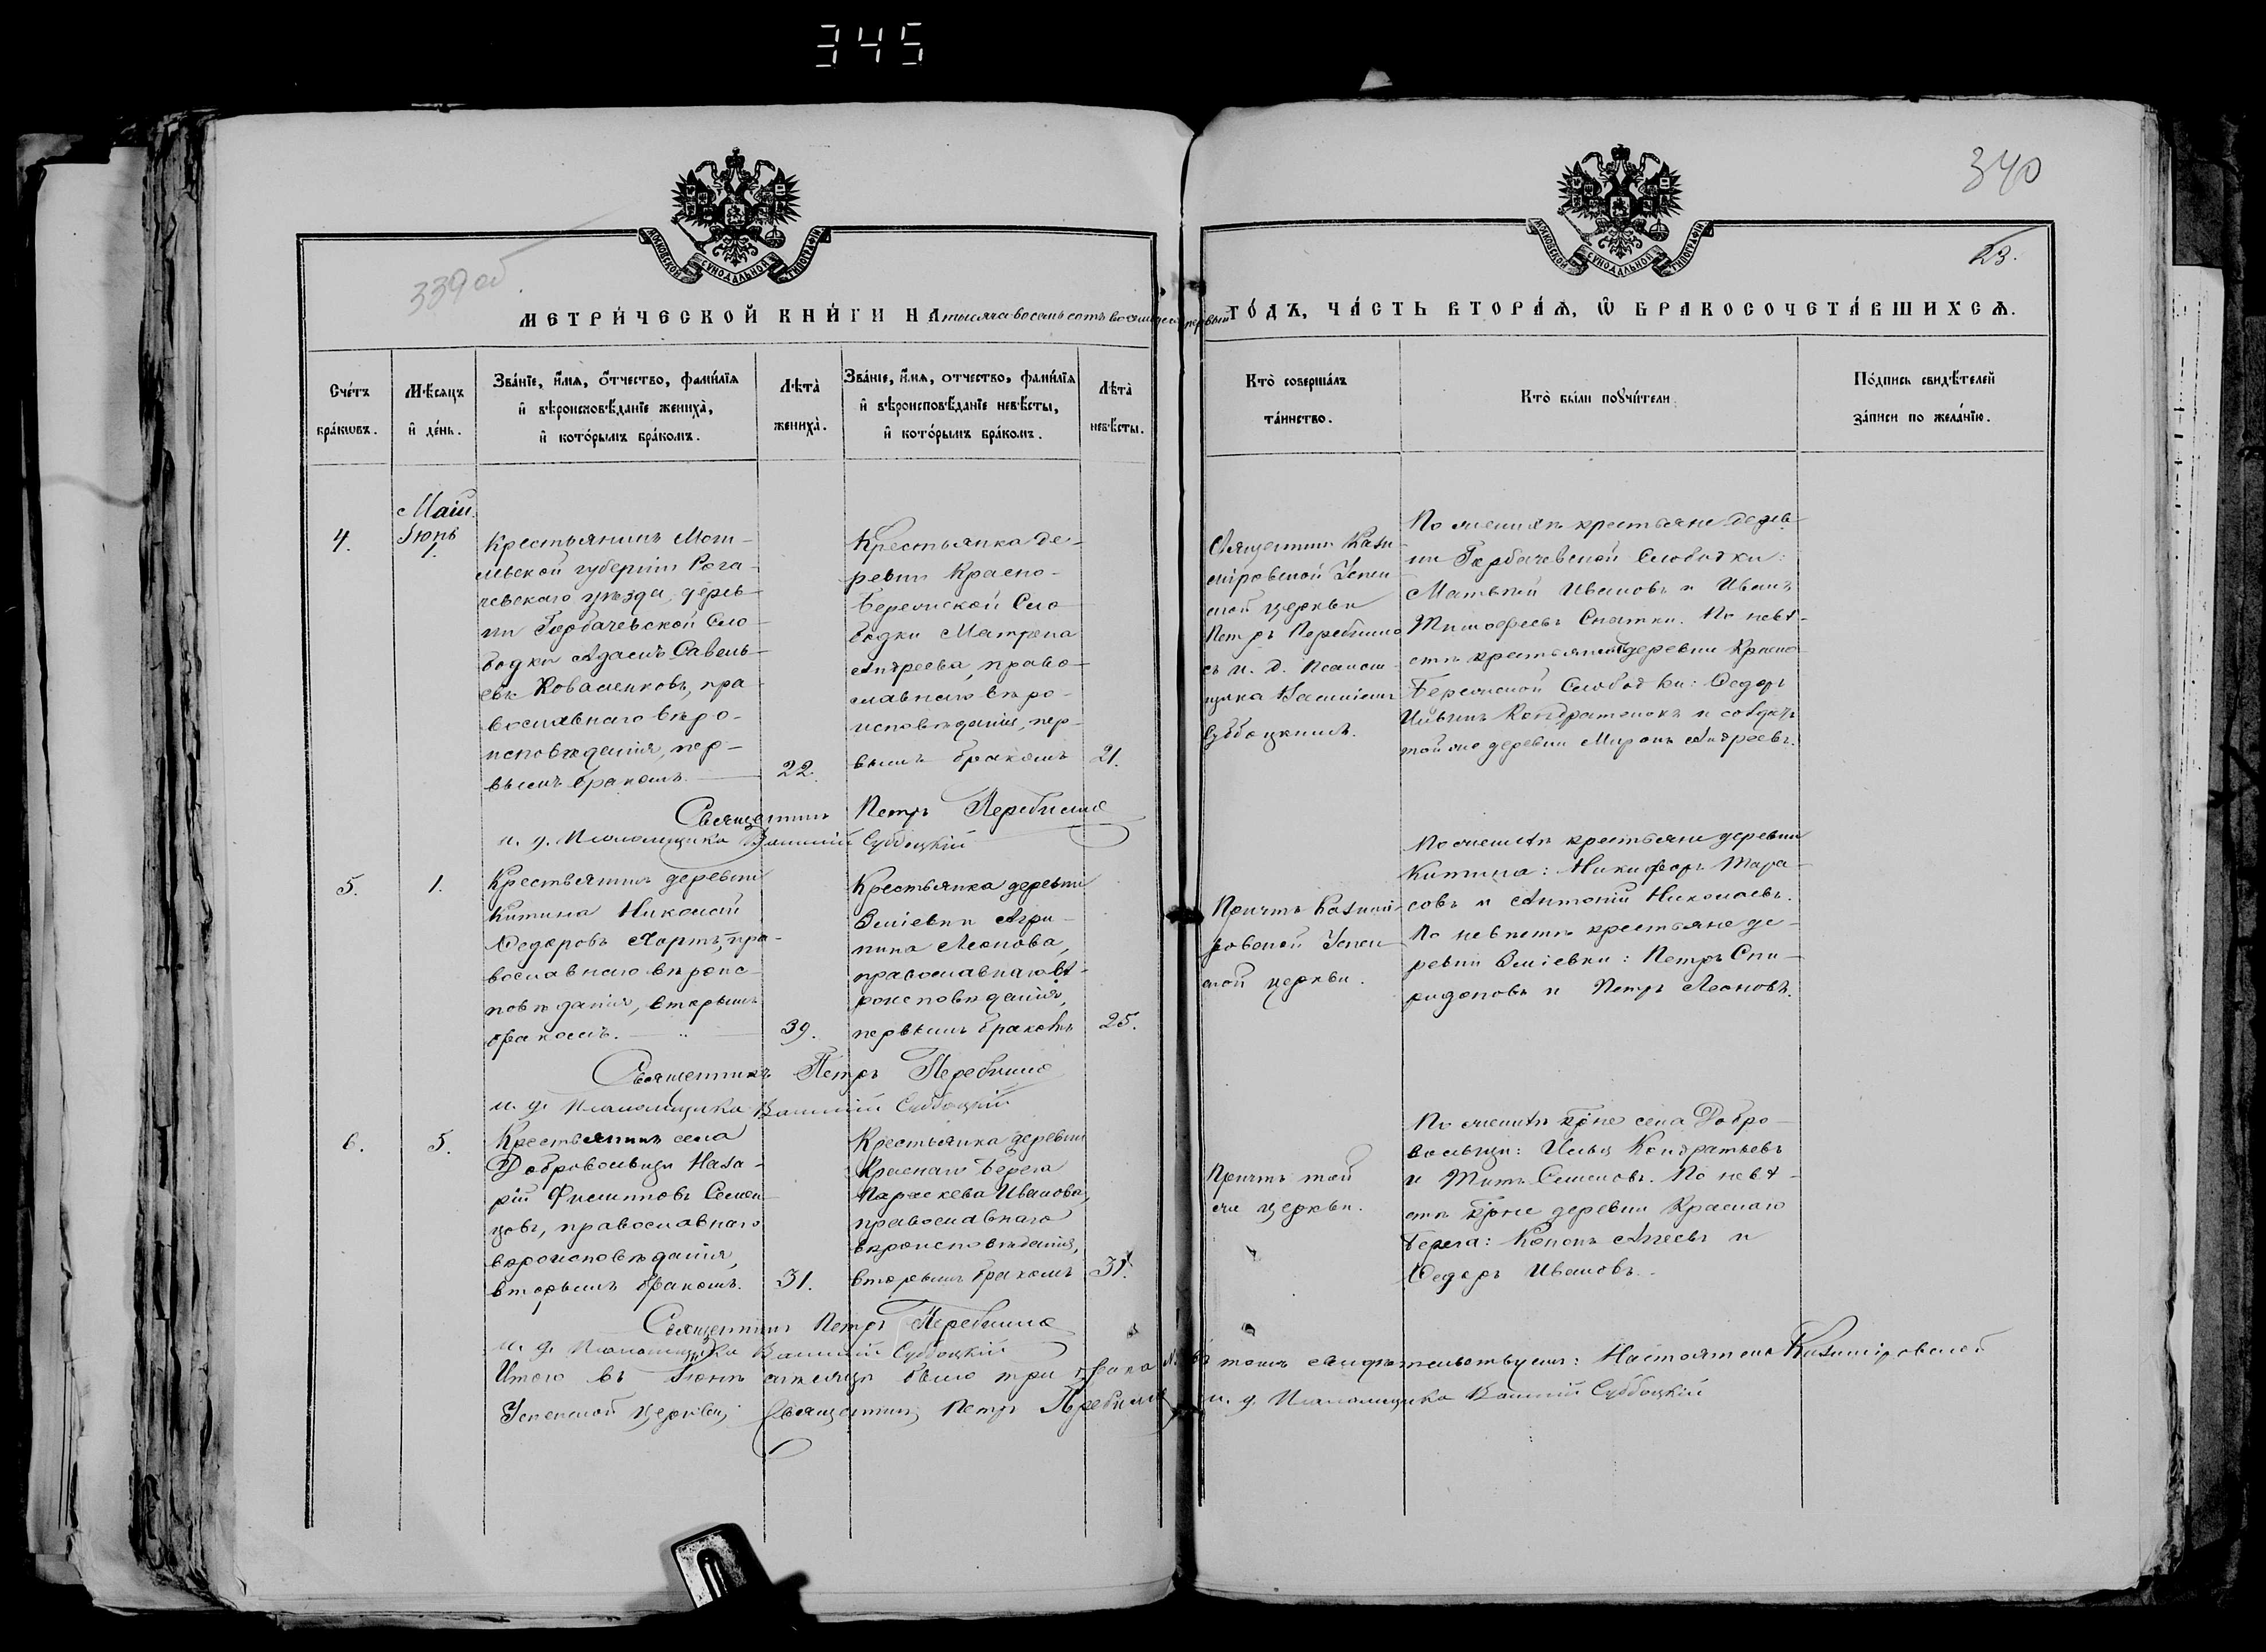 345
340
23.
339 об.
МОСКОВСКОЙ СѴНОДАЛЬНОЙ ТИПОГРАФІИ
МОСКОВСКОЙ СѴНОДАЛЬНОЙ ТИПОГРАФІИ
МЕТРИ́ЧЕСКОЙ КНИ́ГИ НА тысяча восемь сотъ восемьдесятъ первый ГО́ДЪ, ЧА́СТЬ ВТОРА́Ѧ, Ѽ БРАКОСОЧЕТА́ВШИХСѦ.
Сче́тъ
бра́кѡвъ.
Мѣ́сѧцъ
и҆ де́нь.
Зва́нїе, и҆́мѧ, ѻ҆́тчество, фами́лїѧ
и҆ вѣроисповѣ́данїе жениха̀,
и҆ кото́рымъ бра́комъ.
Лѣта̀
жениха̀.
Зва́нїе, и҆́мѧ, отчество, фами́лїѧ
и҆ вѣроисповѣ́данїе невѣ́сты,
и҆ кото́рымъ бра́комъ.
Лѣта̀
невѣ́сты.
Кто̀ соверша́лъ
та́инство.
Кто̀ бы́ли поꙋчи́тели.
По́дпись свидѣ́телей
за́писи по жела́нїю.
4.
Іюнь
1.
Крестьянинъ Моги-
левской губерніи Рога-
чевскаго уѣзда, дерев-
ни Горбачевской Сло-
бодки Адамъ Савель-
евъ Коваленковъ, пра-
вославнаго вѣро-
исповѣданія, пер-
вымъ бракомъ.
22.
Крестьянка де-
ревни Красно-
Берегской Сло-
бодки Матрена
Андреева, право-
славнаго вѣро-
исповѣданія, пер-
вымъ бракомъ
21.
Священникъ Кази-
міровской Успен-
ской церкви
Петръ
съ и. д. Псаломщика
Субботскимъ.
По женихѣ крестьяне дерев-
ни Горбачевской Слободки:
Матвѣй Ивановъ и Иванъ
Тимофеевъ. По невѣ-
стѣ крестьянинъ деревни Красно-
Берегской Слободки: Ѳедоръ
Кондратенокъ и солдатъ
той же деревни Миронъ Андреевъ.
Священникъ Петръ
и. д. Псаломщика Субботскій
5.
1.
Крестьянинъ деревни
Китина Николай
Ѳедоровъ Хортъ, пра-
вославнаго вѣроис-
повѣданія, вторымъ
бракомъ.
39.
Крестьянка деревни
Зміевки Агри-
пина Леонова,
православнаго вѣ-
роисповѣданія,
первымъ бракомъ
25.
Причтъ Казимі-
ровской Успен-
ской церкви.
По женихѣ крестьяне деревни
Китина: Никифоръ Тара-
совъ и Антоній Николаевъ.
По невѣстѣ крестьяне де-
ревни Зміевки: Петръ Спи-
ридоновъ и Петръ Леоновъ.
Священникъ Петръ
и. д. Псаломщика Субботскій
6.
5.
Крестьянинъ села
Добровольщи Наза-
рій Филиповъ Семен-
цовъ, православнаго
вѣроисповѣданія,
вторымъ бракомъ.
31.
Крестьянка деревни
Краснаго Берега
Параскева Иванова,
православнаго
вѣроисповѣданія,
вторымъ бракомъ
31.
Причтъ той
же церкви.
По женихѣ кр-не села Добро-
вольщи: Илья Кондратьевъ
и Титъ Семеновъ. По невѣ-
стѣ кр-не деревни Краснаго
Берега: Кононъ Алеевъ и
Ѳедоръ Ивановъ.
Священникъ Петръ
и. д. Псаломщика Субботскій
Итого въ Іюнѣ мѣсяцѣ было три брака. въ томъ свидѣтельствуемъ: Настоятель Казиміровской
Успенской церкви, Священникъ Петръ и. д. Псаломщика Субботскій